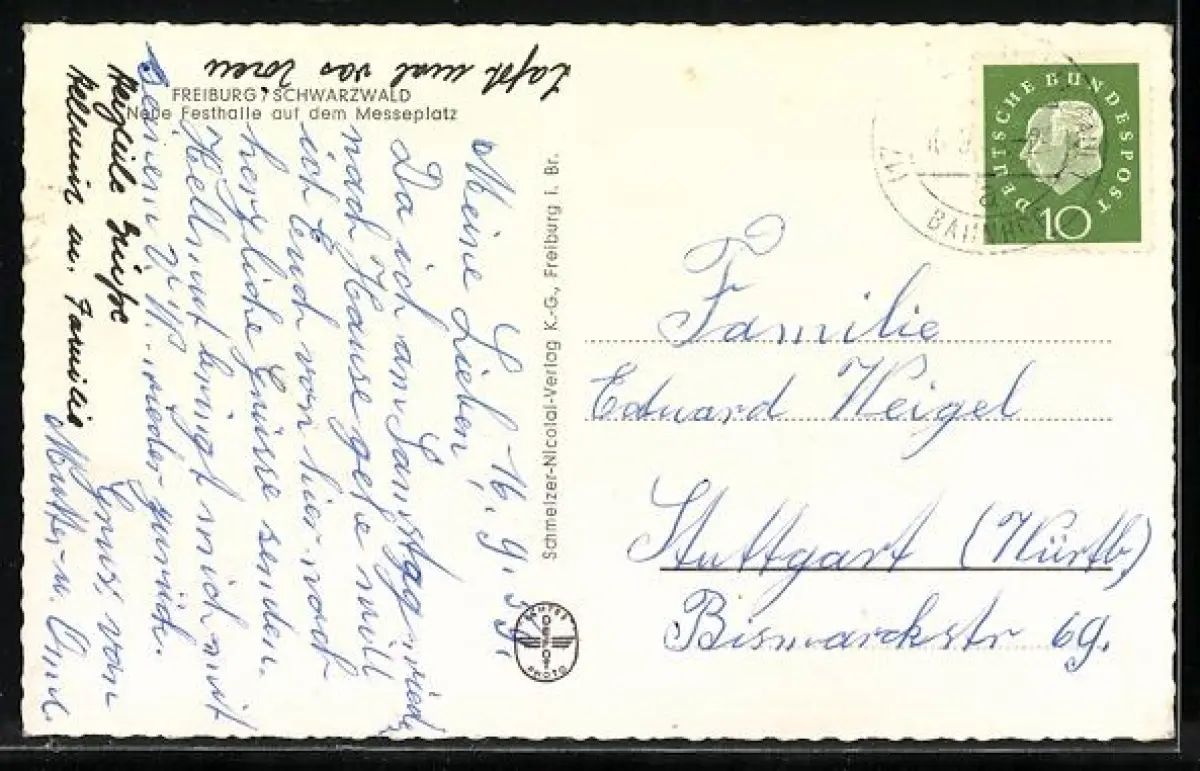 FREIBURG / SCHWARZWALD
Neue Festhalle auf dem Messeplatz
16. 9. 59.
Meine Lieben,
Da ich am Samstag wieder
nach Hause gehe will
ich Euch von hier noch
herzliche Grüsse senden.
Hellmut bringt mich mit
seinem V.W. wieder zurück.
Gruss von
Mutter u. Oma.
Herzliche Grüße
Hellmut u. Familie
Laßt mal was hören
Schmelzer-Nicolai-Verlag K.-G., Freiburg i. Br.
ECHTES
PHOTO
DEUTSCHE BUNDESPOST
10
BAHNH
Familie
Eduard Weigel
Stuttgart (Württb)
Bismarckstr 69.